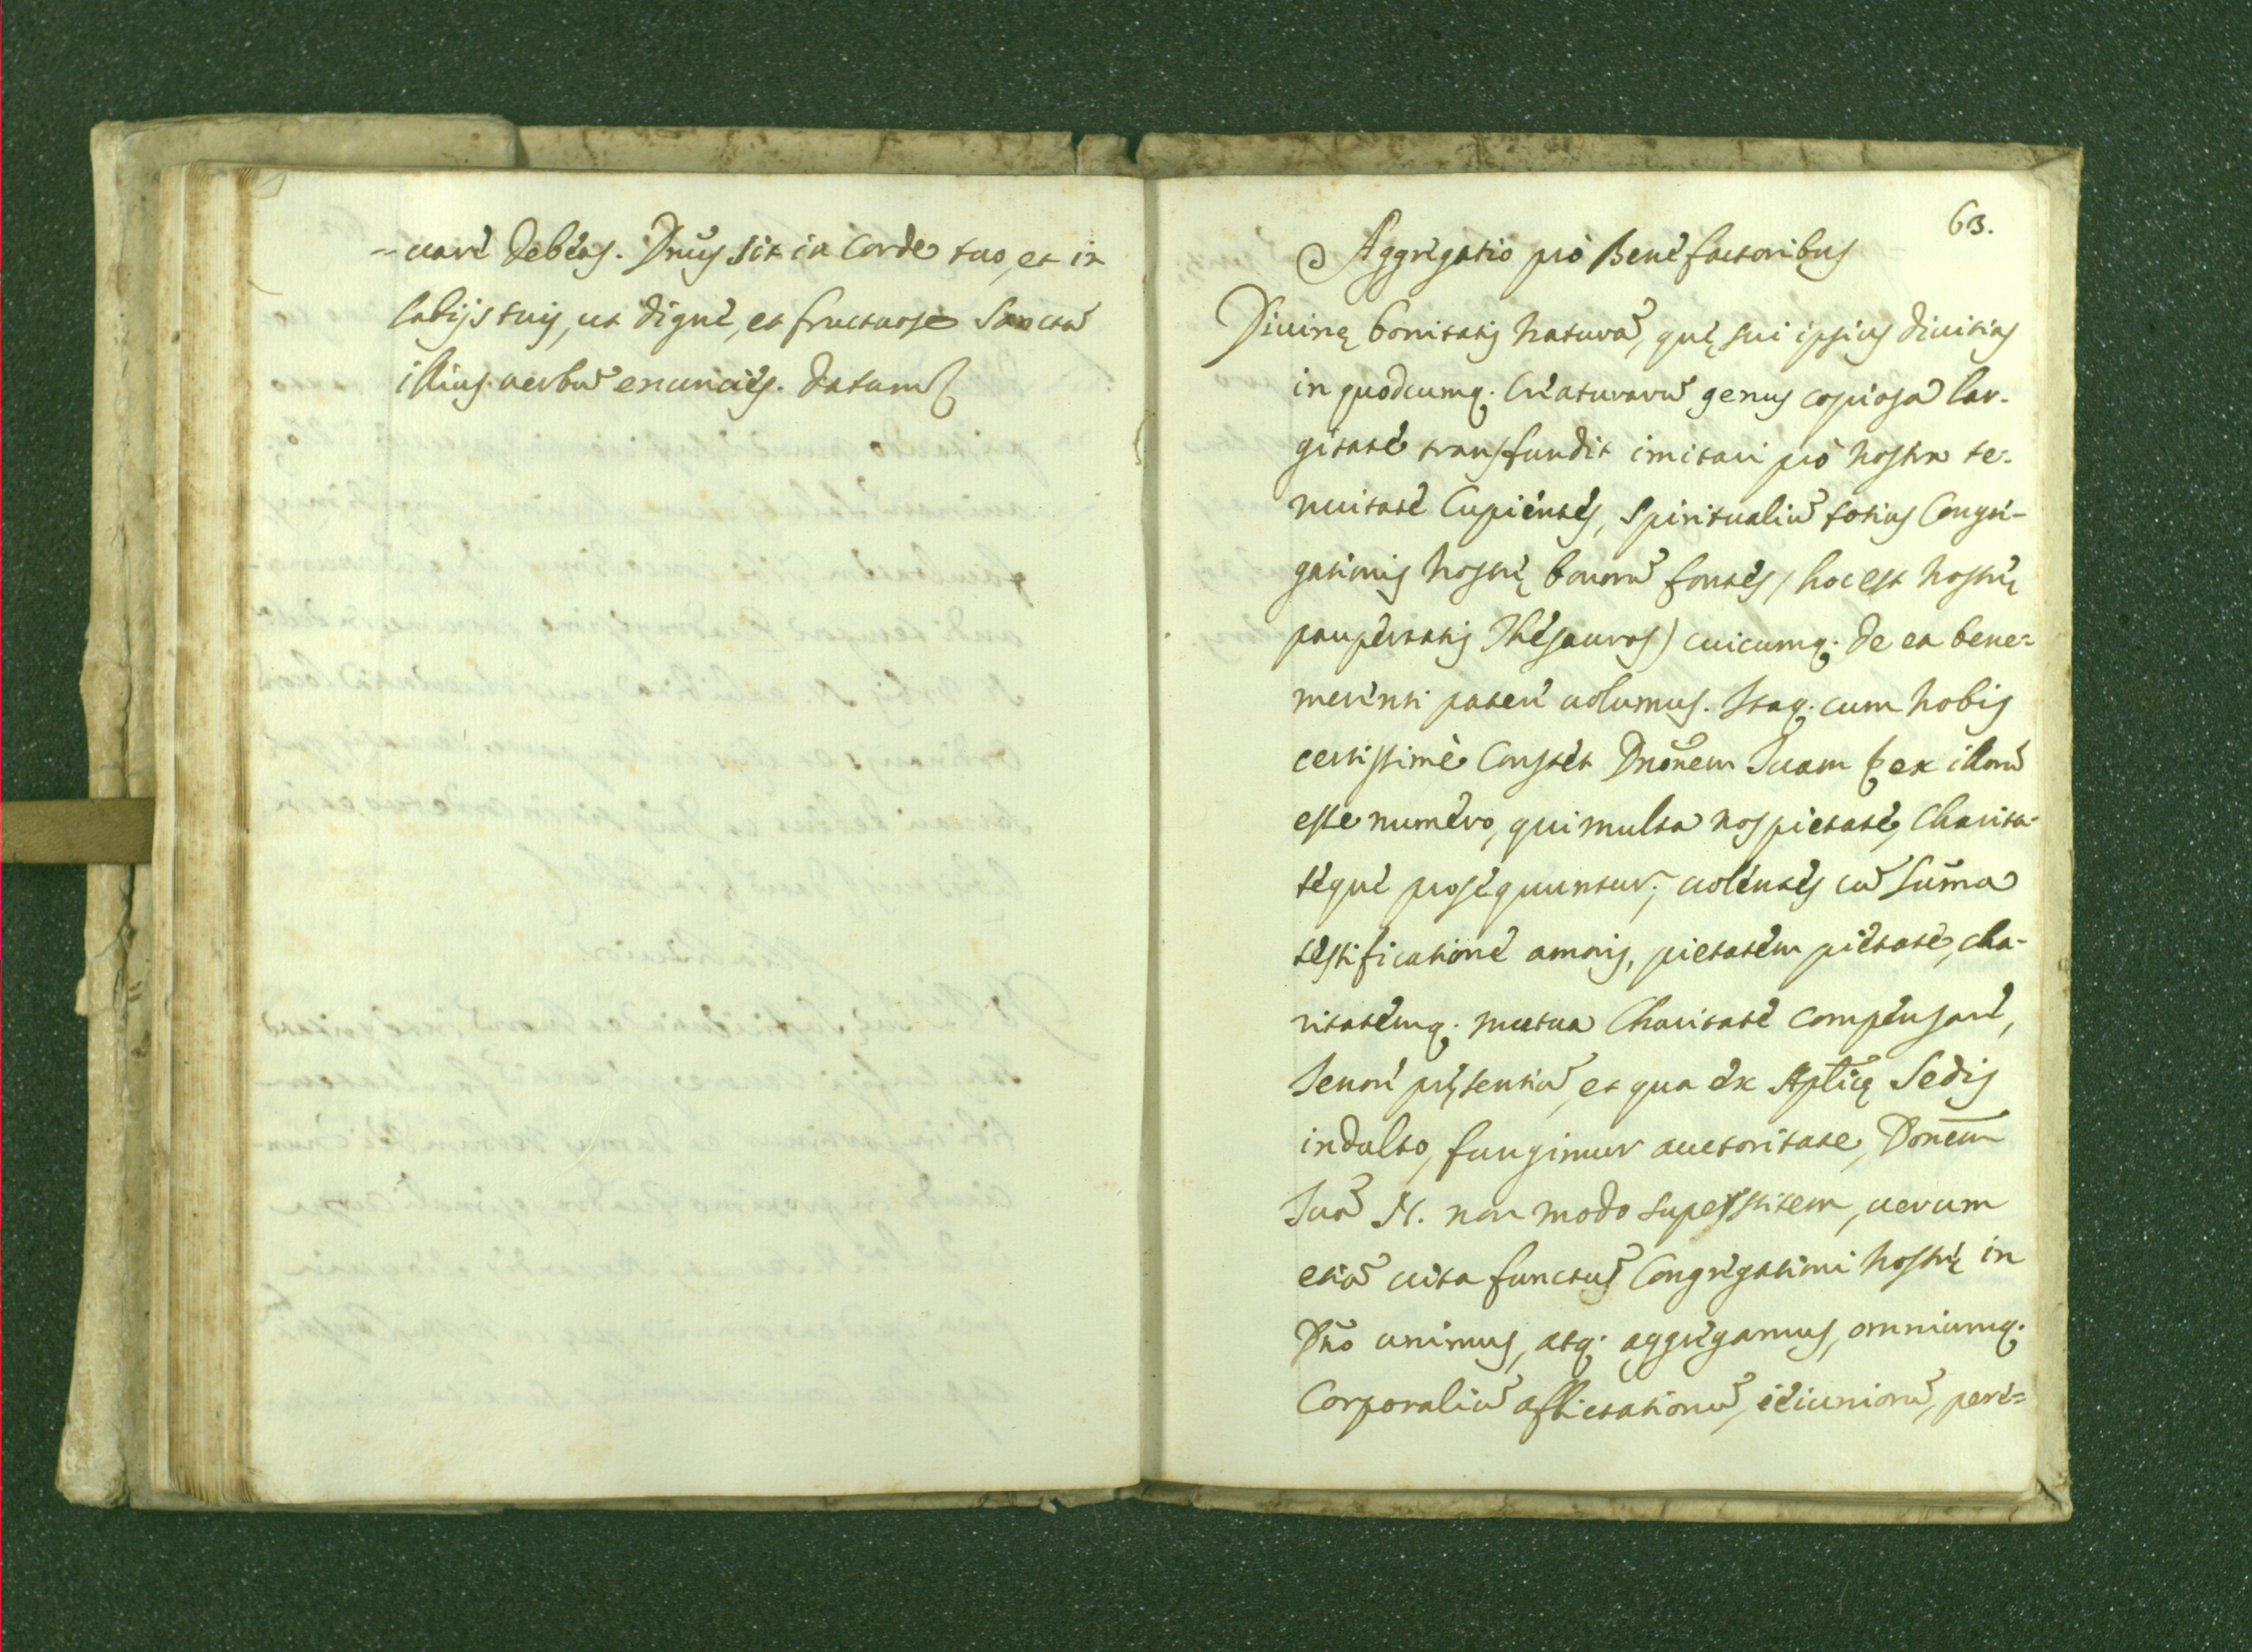 -uare debeas. Dnũs sit in Corde tuo, et in
labijs tuis, ut dignè, et fructuose Sanctũ
illius uerbũ enuncies. Datum
63.
Aggregatio pro Benefactoribus
Diuinę bonitatis naturã, quę sui ipsius diuitias
in quodcumq. Creaturarũ genus copiosa lar-
gitate transfundit imitari pro nostra te-
nuitate Cupientes, Spiritualiũ totius Congre-
gationis nostrę bonorũ fontes, (hoc est nostrę
paupertatis Thesauros) cuicumq. de ea bene=
merenti patere uolumus. Itaq. cum nobis
certissimè Constet Dnõnem Suam ex illorũ
esse numero, qui multa nos pietate, Charita-
teque prosequuntur; uolentes cũ Sũma
testificatione amoris, pietatem pietate, cha-
ritatemq. mutua Charitate compensare,
Tenore pręsentiũ, et qua ex Aplicę Sedis
indulto, fungimur auctoritate, Donem̃
Suã N. non modo superstitem, uerum
etiã uita functũ Congregationi nostrę in
Dño unimus, atq. aggregamus, omniumq.
Corporaliũ afflictationũ, ieiuniorũ, pere=